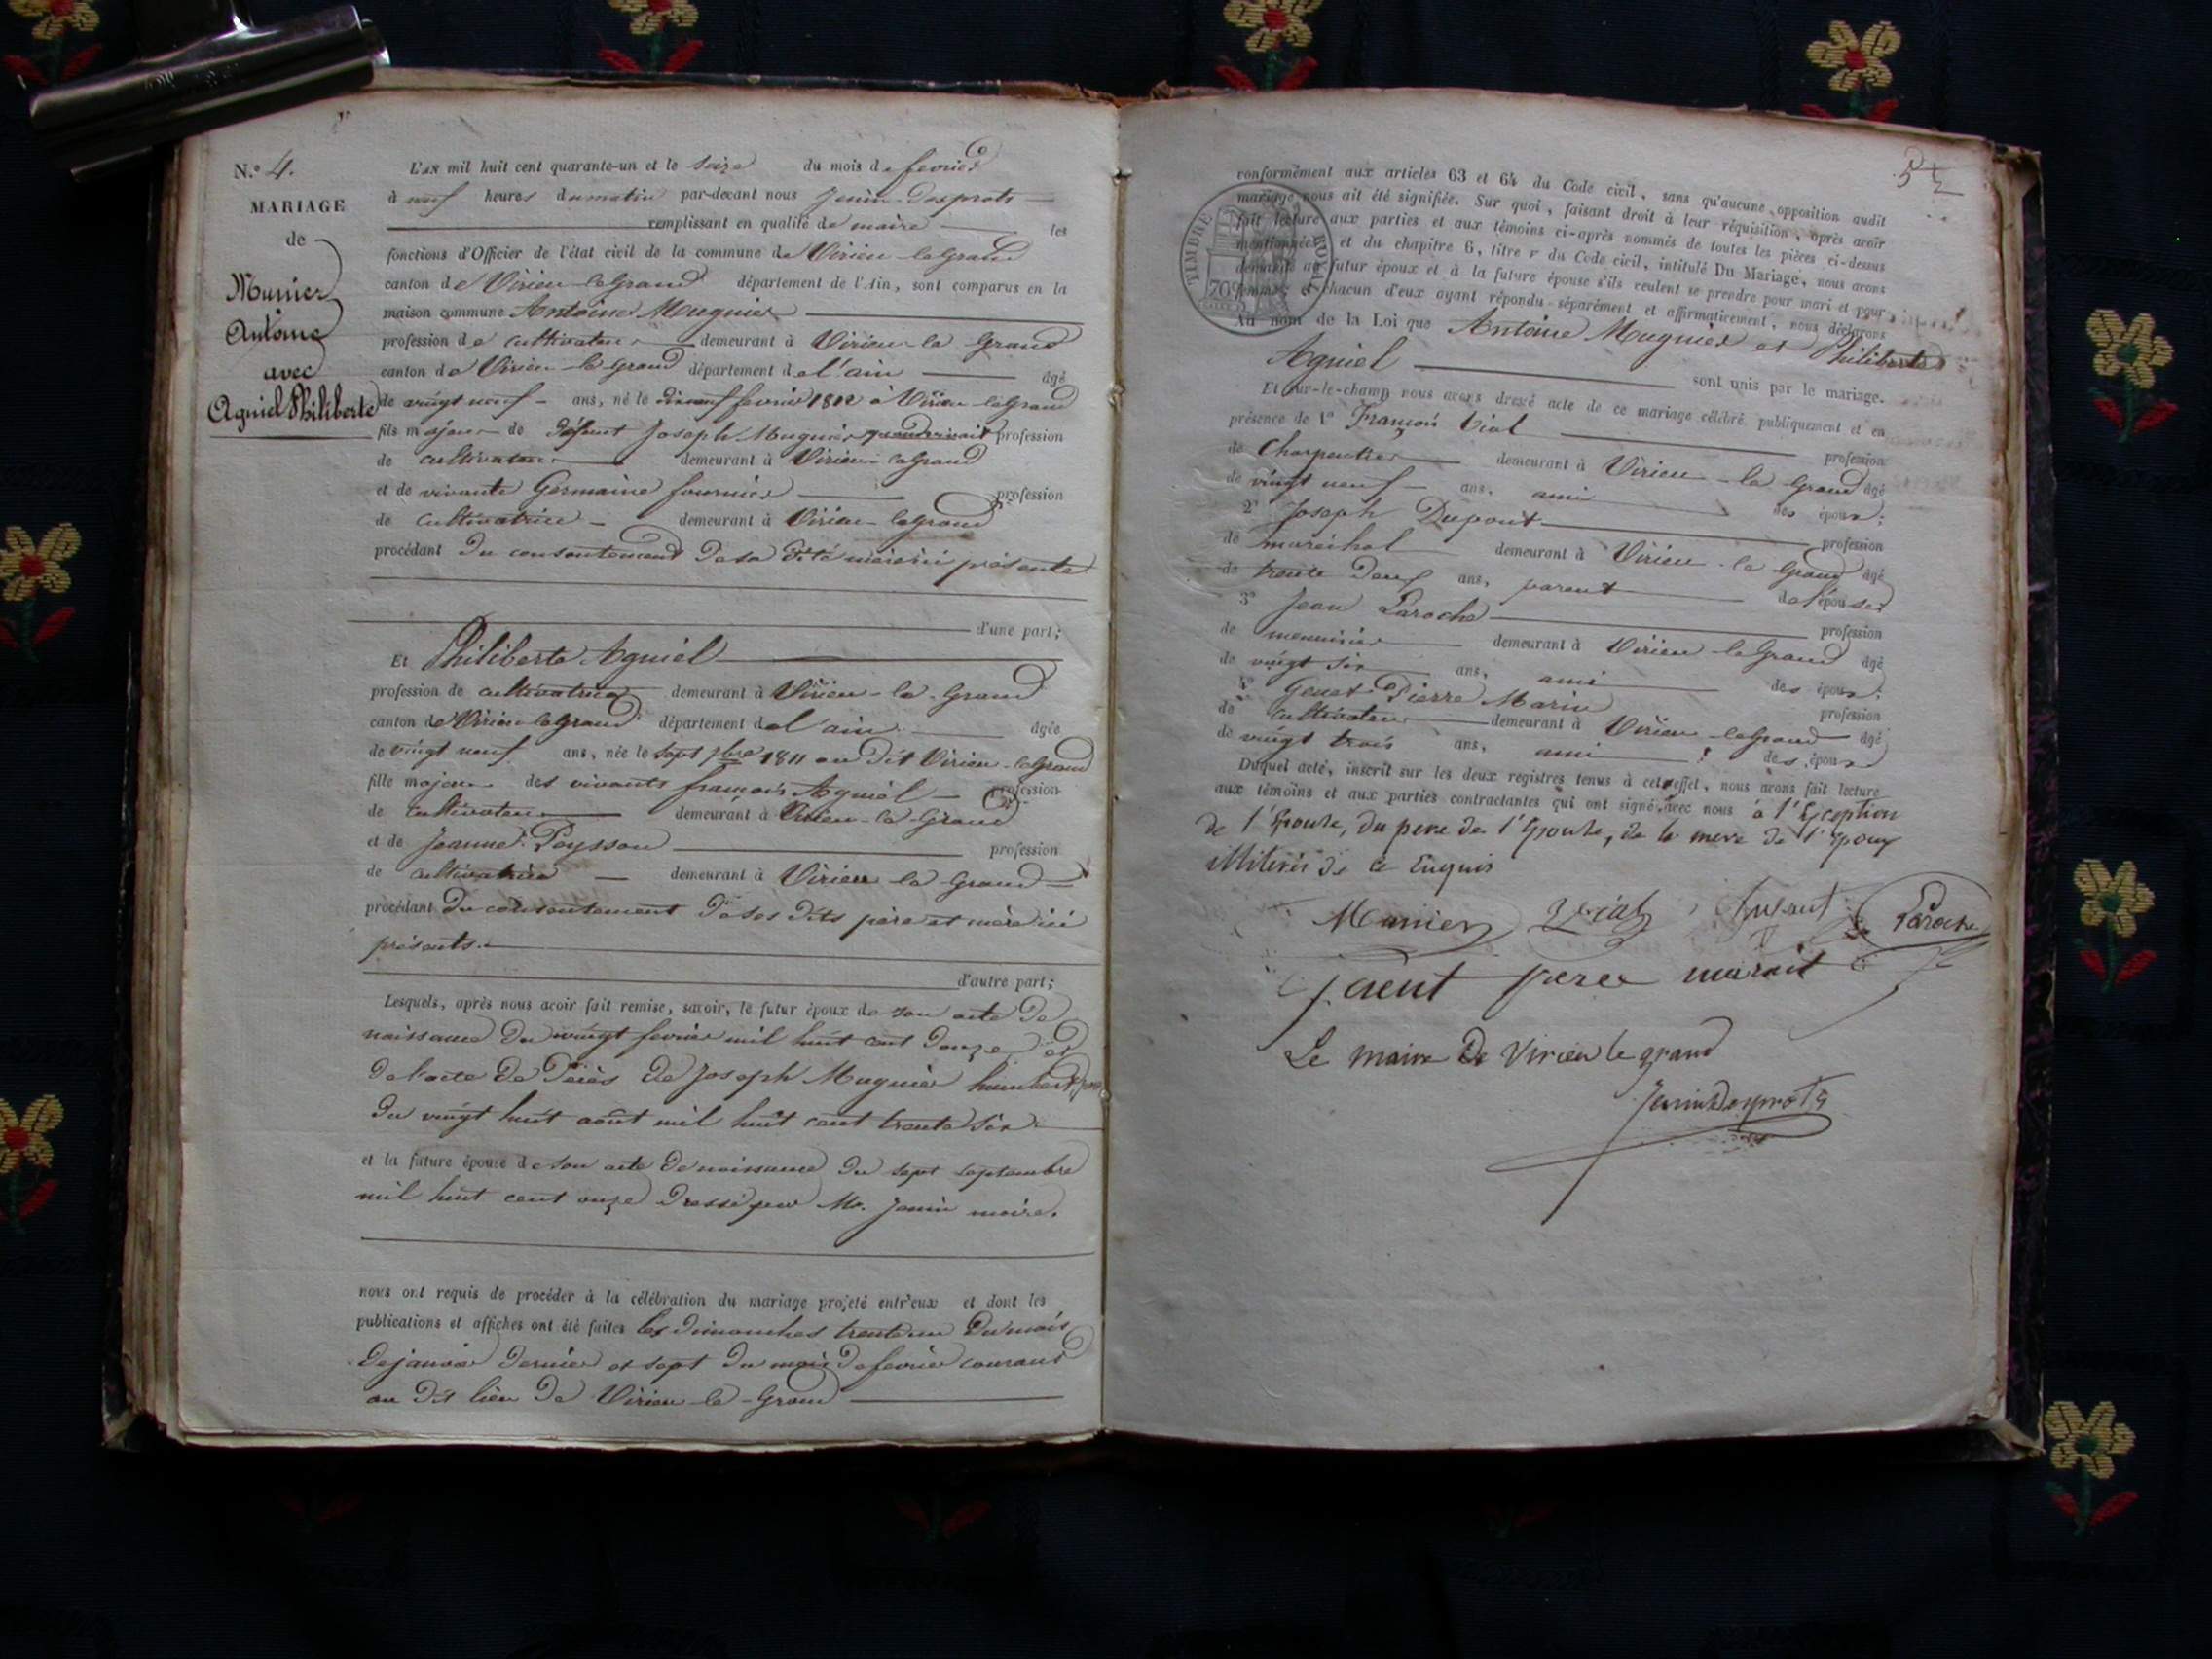 N.° 4.
MARIAGE
de
Munier
Antoine
avec
Agniel Philiberte
L'AN mil huit cent quarante-un et le seize du mois de fevrier
à neuf heures du matin par-devant nous Jenin Desprots
remplissant en qualité de maire les
fonctions d'Officier de l'état civil de la commune de Virieu-le-Grand
canton de Virieu-le-Grand département de l'Ain, sont comparus en la
maison commune Antoine Mugnier
profession de cultivateur demeurant à Virieu-le-Grand
canton de Virieu-le-Grand département de l'ain âgé
de vingt neuf ans, né le dixneuf fevrier 1812 à Virieu-le-Grand
fils majeur de défunt Joseph Mugnier quand vivait profession
de cultivateur demeurant à Virieu-le Grand
et de vivante Germaine fournier profession
de cultivatrice demeurant à Virieu-le Grand
procédant du consentement de sa dite mère ici présente
d'une part;
Et Philiberte Agniel
profession de cultivatrice demeurant à Virieu-le-Grand
canton de Virieu-le Grand département de l'ain âgée
de vingt neuf ans, née le sept 7bre 1811 au dit Virieu-le Grand
fille majeure des vivants françois Agniel profession
de cultivateur demeurant à Virieu-le-Grand
et de Jeanne Peysson profession
de cultivatrice demeurant à Virieu-le Grand
procédant du consentement de ses dits père et mère ici
présents.
d'autre part;
Lesquels, après nous avoir fait remise, savoir, le futur époux de son acte de
naissance du vingt fevrier mil huit cent douze et
de l'acte de décès de Joseph Mugnier humbert
du vingt huit août mil huit cent trente six
et la future épouse de son acte de naissance du sept septembre
mil huit cent onze dressé par Mr. Jenin maire.
nous ont requis de procéder à la célébration du mariage projeté entr'eux et dont les
publications et affiches ont été faites les dimanches trente un du mois
de janvier dernier et sept du mois de fevrier courant
au dit lieu de Virieu-le-Grand
TIMBRE ROYAL
70
conformément aux articles 63 et 64 du Code civil, sans qu'aucune opposition audit
mariage nous ait été signifiée. Sur quoi, faisant droit à leur réquisition, après avoir
fait lecture aux parties et aux témoins ci-après nommés de toutes les pièces ci-dessus
mentionnées, et du chapitre 6, titre V du Code civil, intitulé Du Mariage, nous avons
demandé au futur époux et à la future épouse s'ils veulent se prendre pour mari et pour
femme; et chacun d'eux ayant répondu séparément et affirmativement, nous déclarons
Au nom de la Loi que Antoine Mugnier et Philiberte
Agniel sont unis par le mariage.
Et sur-le-champ nous avons dressé acte de ce mariage célébré publiquement et en
présence de 1° François Vial profession
de Charpentier demeurant à Virieu-le Grand âgé
de vingt neuf ans, ami des époux;
2° Joseph Dupont profession
de maréchal demeurant à Virieu-le Grand âgé
de trente deux ans, parent de l'épouse;
3° Jean Laroche profession
de menuisier demeurant à Virieu-le Grand âgé
de vingt six ans, ami des époux;
4° Genet Pierre Marin profession
de cultivateur demeurant à Virieu-le Grand âgé
de vingt trois ans, ami des époux
Duquel acte, inscrit sur les deux registres tenus à cet effet, nous avons fait lecture
aux témoins et aux parties contractantes qui ont signé avec nous à l'Exception
de l'Epouse, du pere de l'Epouse, de la mere de l'Epoux
illiterés de ce Enquis
Munier Vial Dupont Laroche
Le maire de Virieu le grand
Jenin Desprots